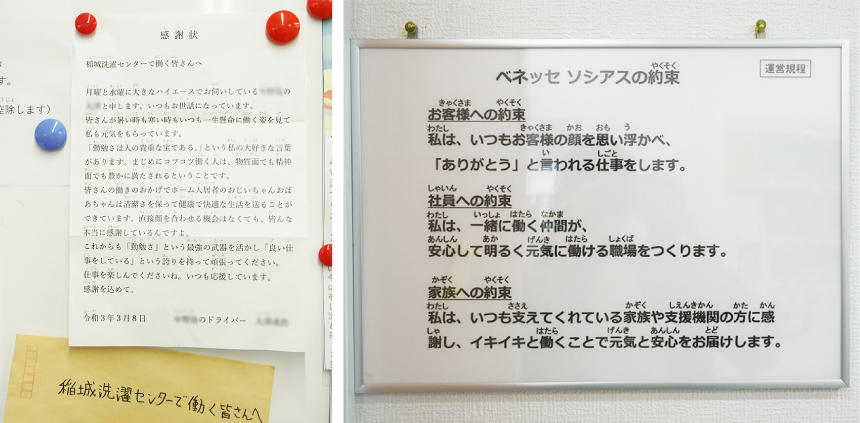 す。
控除します)
感謝状
稲城洗濯センターで働く皆さんへ
月曜と水曜に大きなハイエースでお伺いしている
と申します。いつもお世話になっています。
皆さんが暑い時も寒い時もいつも一生懸命に働く姿を見て
私も元気をもらっています。
「勤勉さは人の貴重な宝である。」という私の大好きな言葉
があります。まじめにコツコツ働く人は、物質面でも精神
面でも豊かに満たされるということです。
皆さんの働きのおかげでホーム入居者のおじいちゃんおば
あちゃんは清潔さを保って健康で快適な生活を送ることが
できています。直接顔を合わせる機会はなくても、皆んな
本当に感謝しているんですよ。
これからも「勤勉さ」という最強の武器を活かし「良い仕
事をしている」という誇りを持って頑張ってください。
仕事を楽しんでくださいね。いつも応援しています。
感謝を込めて。
令和3年3月8日
のドライバー
稲城洗濯センターで働く皆さんへ
ベネッセ ソシアスの約束
やくそく
運営規程
きゃくさま やくそく
お客様への約束
わたし きゃくさま かお おも う
私は、いつもお客様の顔を思い浮かべ、
い しごと
「ありがとう」と言われる仕事をします。
しゃいん やくそく
社員への約束
わたし いっしょ はたら なかま
私は、一緒に働く仲間が、
あんしん あか げんき はたら しょくば
安心して明るく元気に働ける職場をつくります。
かぞく やくそく
家族への約束
わたし ささえ かぞく しえんきかん かた かん
私は、いつも支えてくれている家族や支援機関の方に感
しゃ はたら げんき あんしん とど
謝し、イキイキと働くことで元気と安心をお届けします。